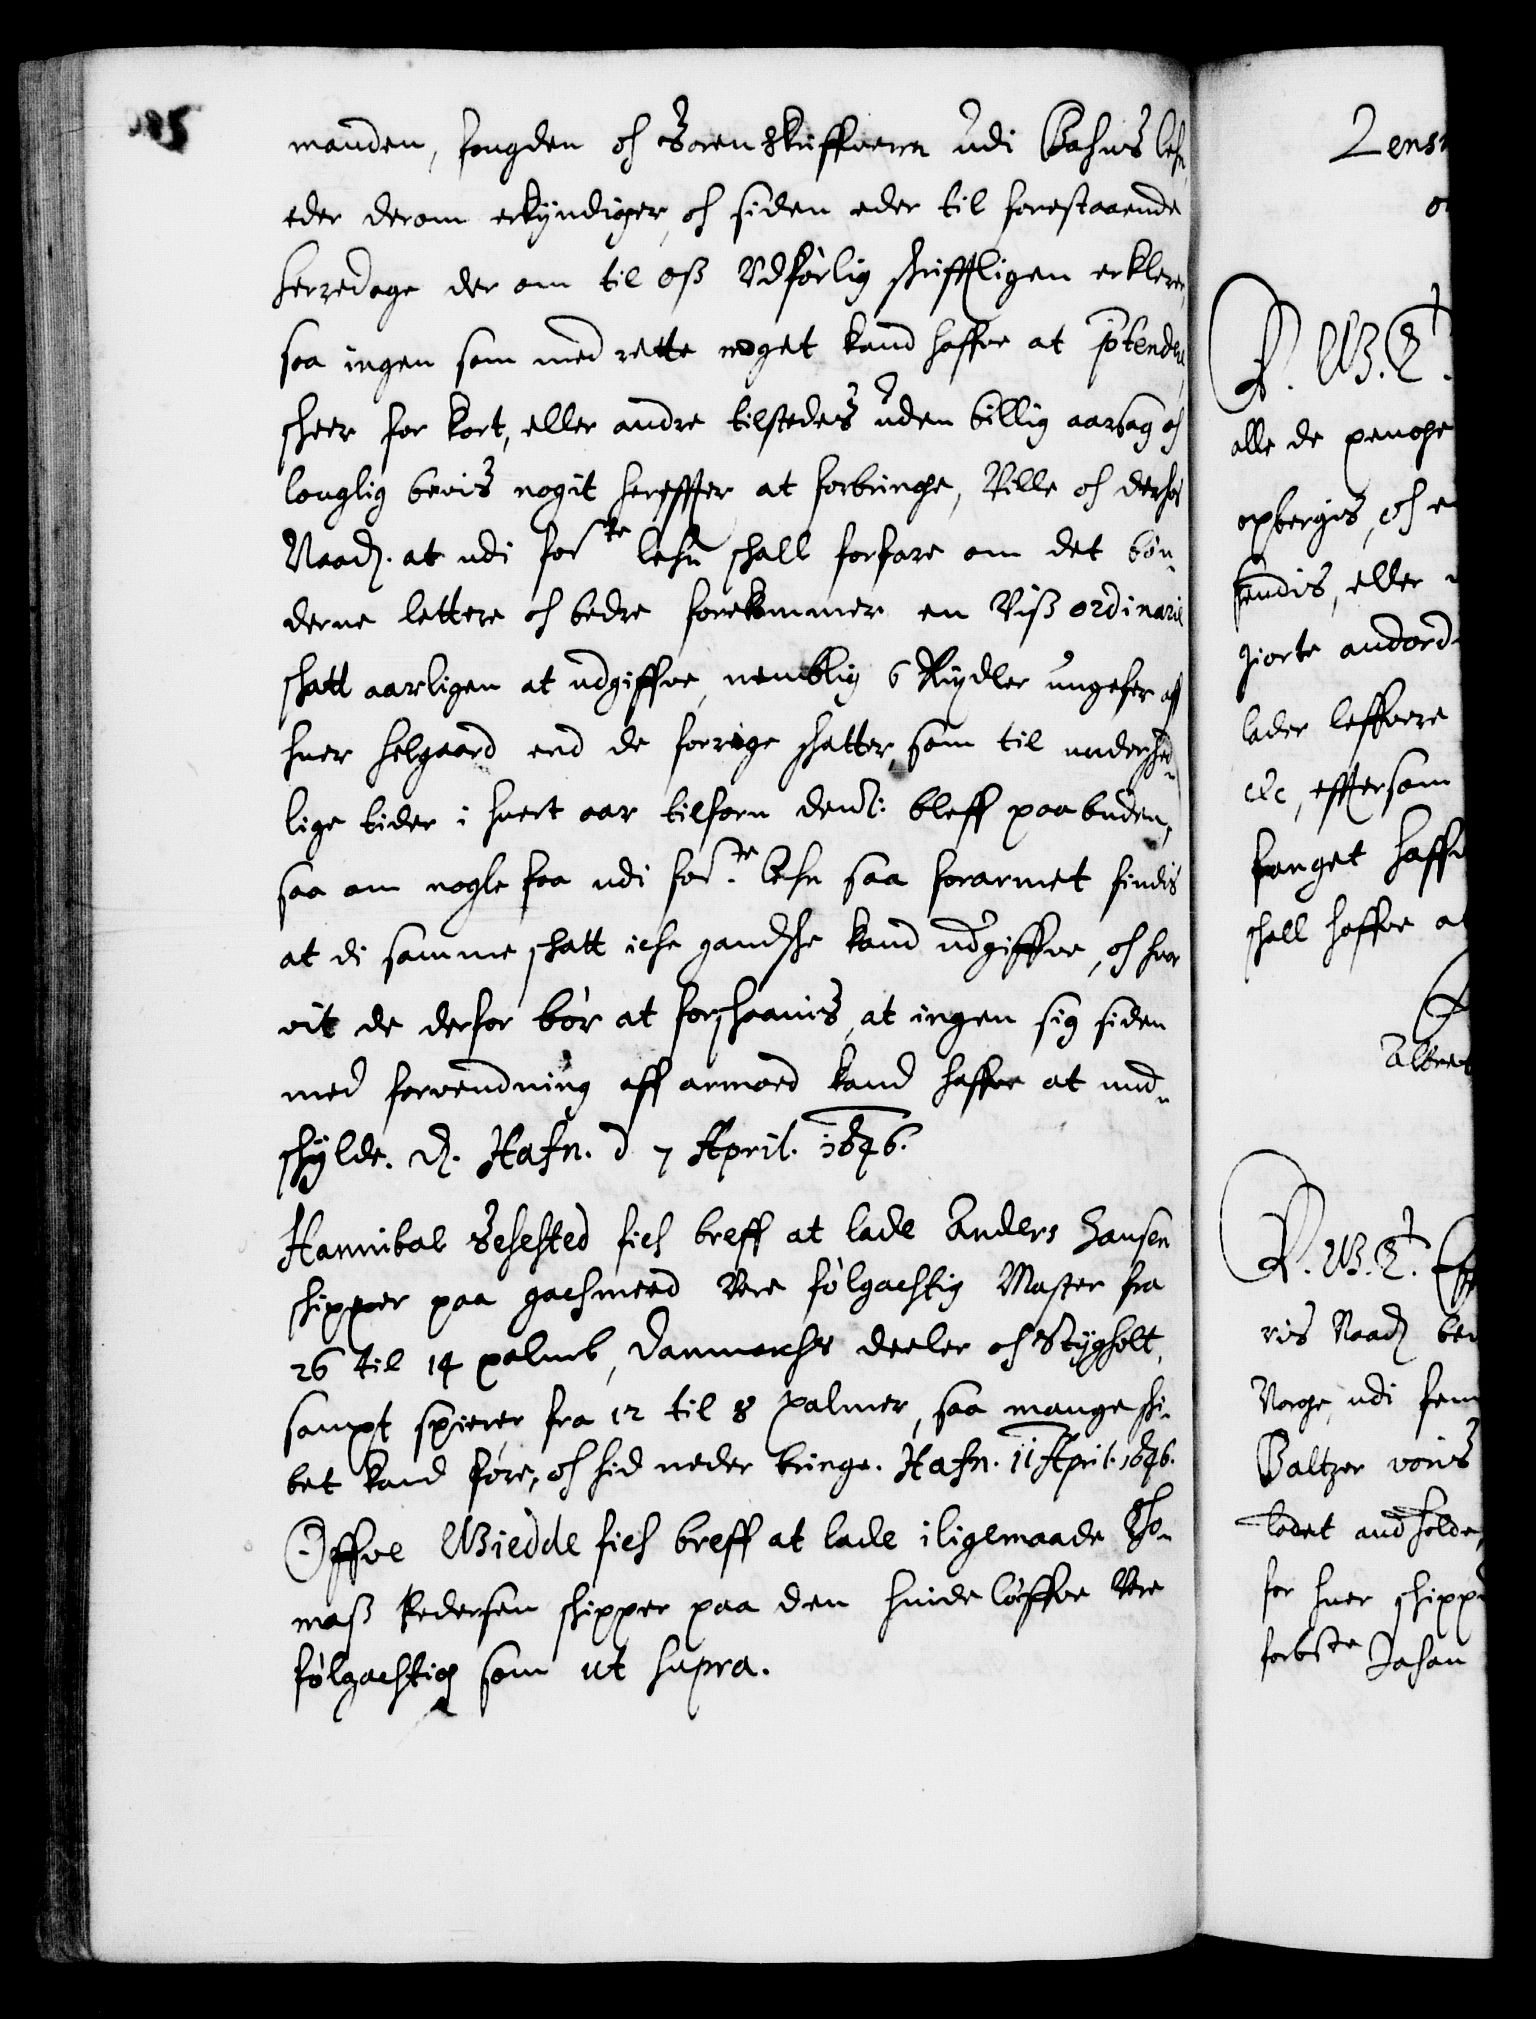 manden, fougden och Sorenskriffvern udi Bahus lehn,
eder derom erkyndiger, och siden eder til forestaaende
herredage der om til oss Vdførlig skriftligen erklerer,
saa ingen som med rette noget kand haffve at prætendere,
skeer for kort, eller andre tilstedes uden billig aarsag och
louglig bevis nogit herefter at forbringe, Ville och derhos
Naad. at udi forte lehn schall forfare om det bøn-
derne lettere och bedre forekommer en Viss ordinarie
schatt aarligen at udgiffve, nemblig 6 Rixdler ungefer aff
huer helgaard end de forrige schatter, som til underschied-
lige tider i huert aar tilforn bleff paabuden,
saa om nogle faa udi forte lehn saa forarmet findis
at di samme schatt iche gandsche kand udgiffve, och huor
vit de derfor bør at forschaanis, at ingen sig siden
med forvendning aff armoed kand haffve at und-
schylde. D. Hafn. d 7 April. 1646.
Hannibal Sehested fich breff at lade Anders Hansen
schipper paa gachmeed Vere følgachtig Master fra
26 til 14 palmb, Danmarchs deeler och Stygholt,
sampt spierer fra 12 til 8 palmer, saa mange schi-
bet kand føre, och hid neder bringe. Hafn. 11 April. 1646.
Offve Giedde fich breff at lade iligemaade Tho-
mass Pedersen schipper paa den huide løffve Vere
følgachtig som ut supra.
Lens
alle de penge
opbergis, och
sendis, eller
giorte andord
lader leffvere
etc, eftersom
fanget haff
schall haffve
Albret
ris Naad
Norge, udi
Baltzer voris
ladet andholde
for huer schipp
forbte Johan